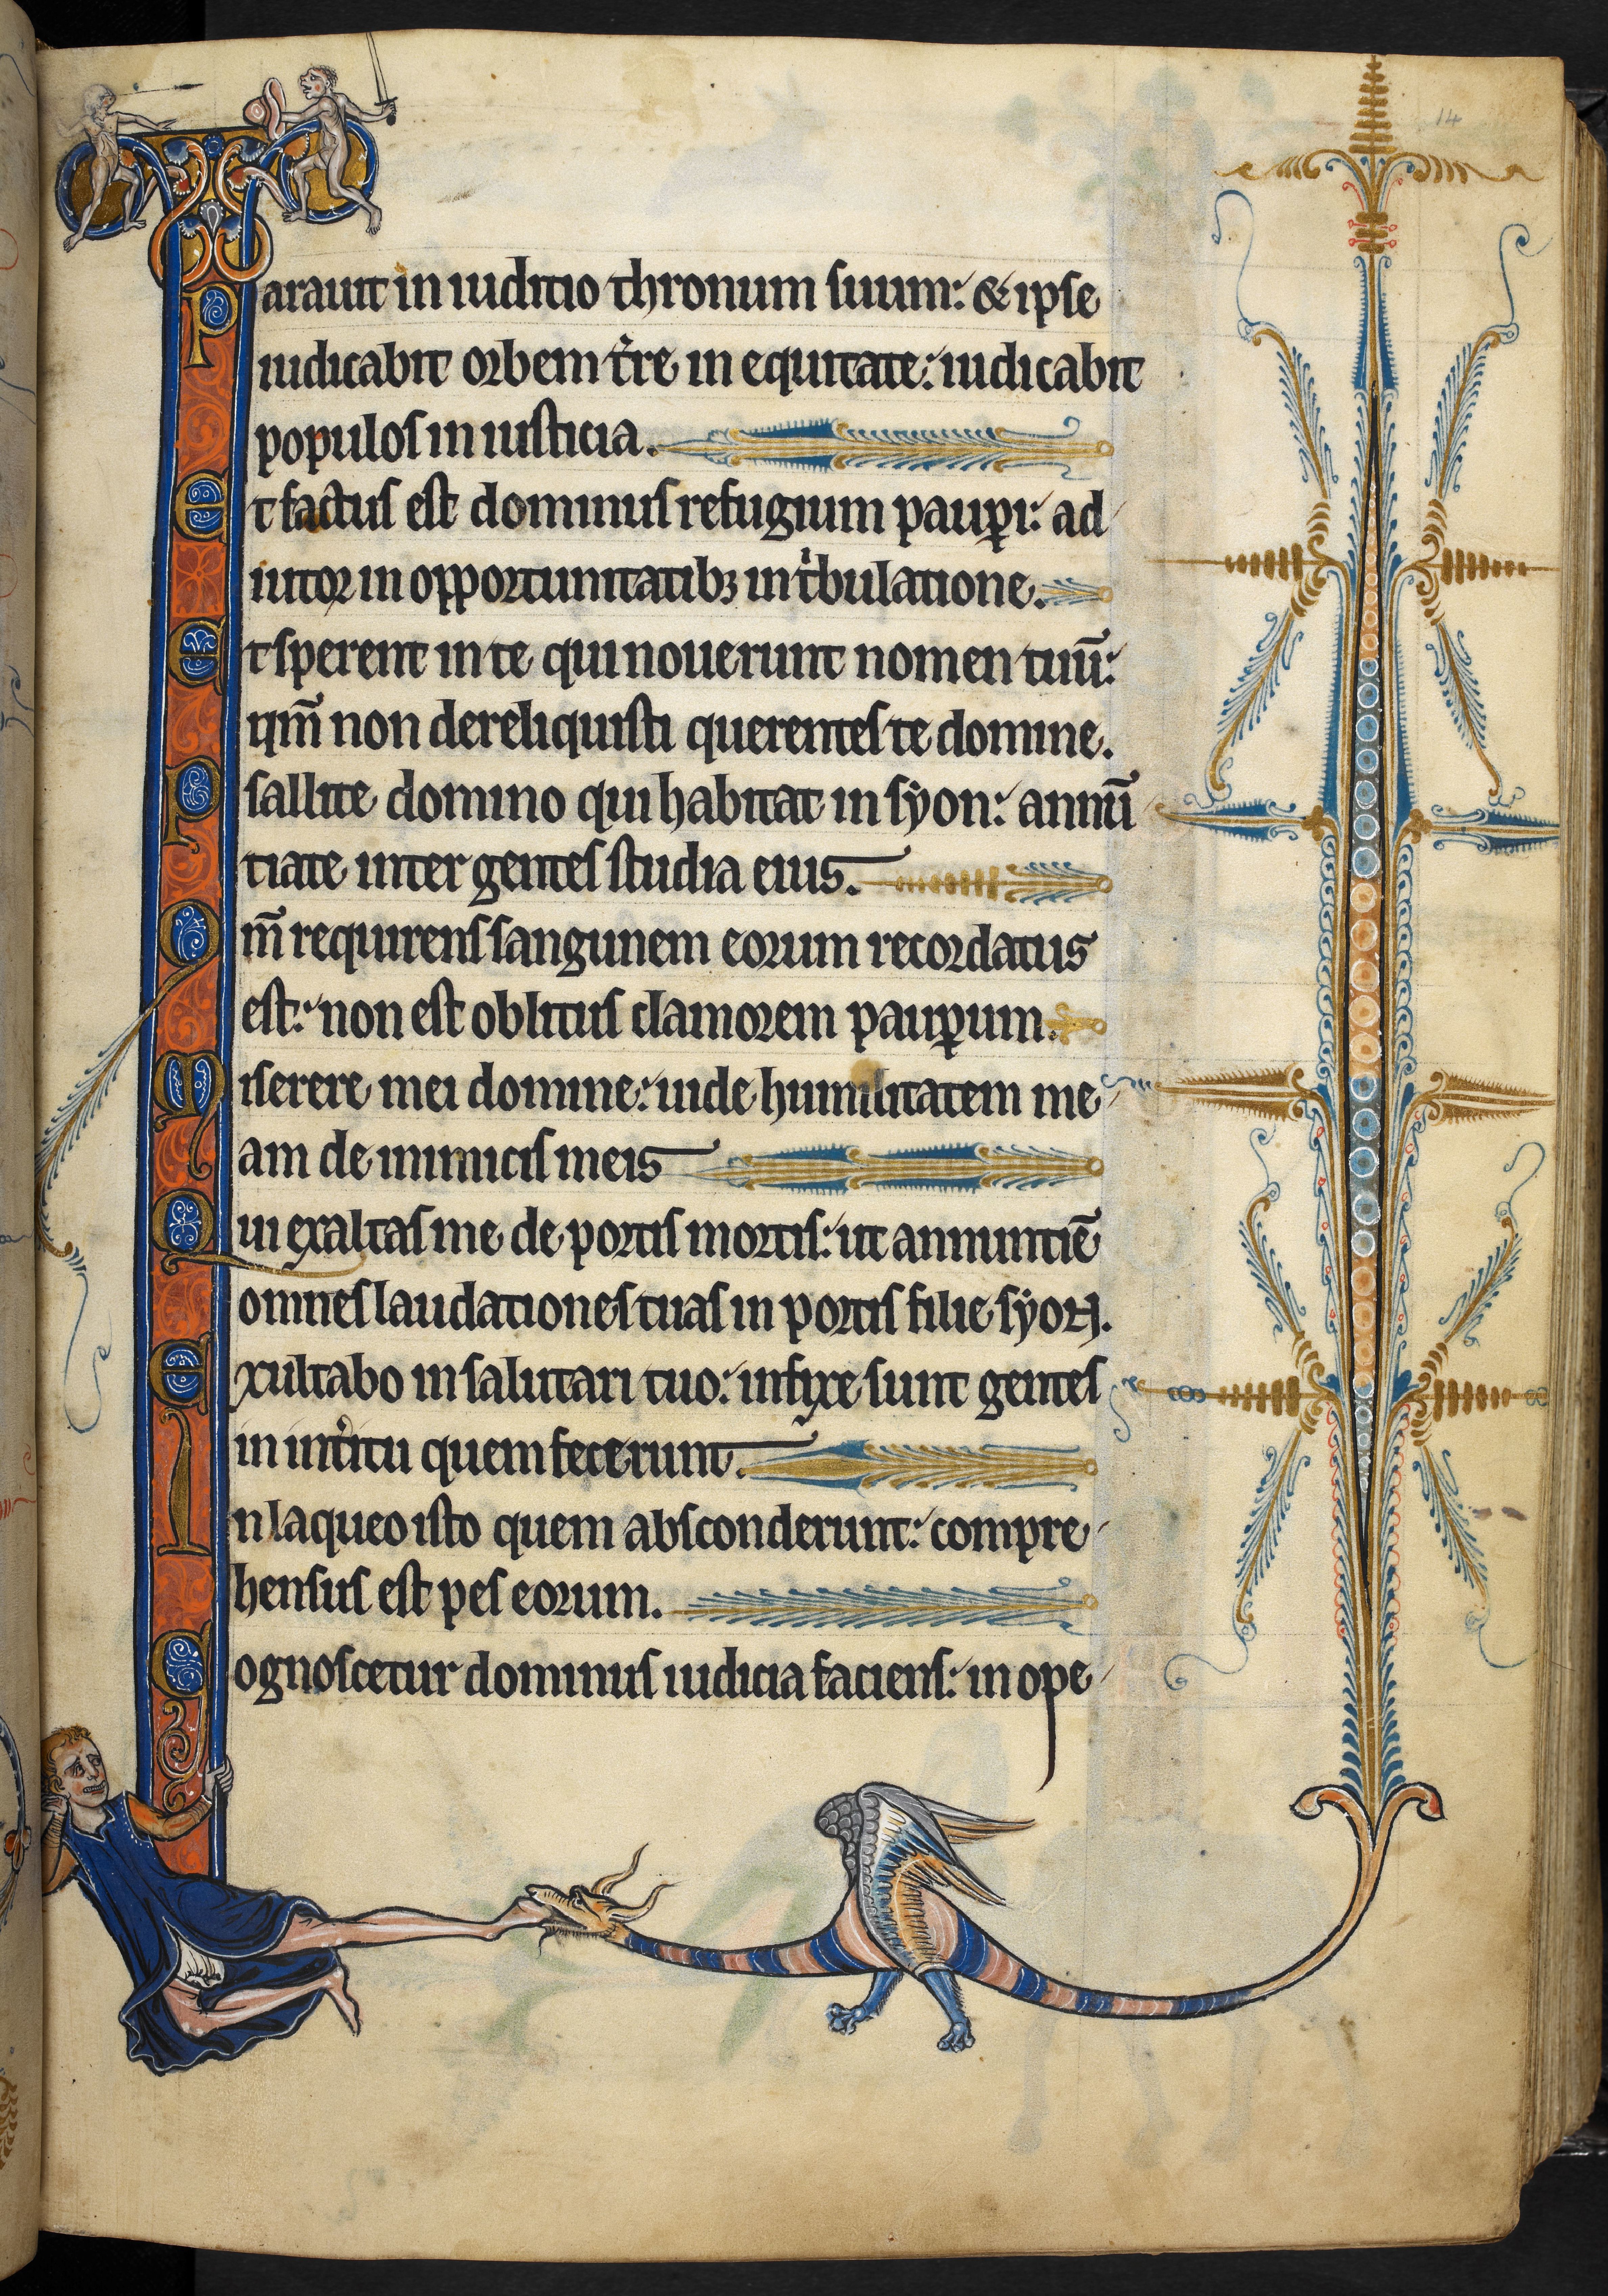 14
Parauit in iuditio thronum suum: & ipse
iudicabit orbem t̾re in equitate: iudicabit
populos in iusticia.
Et factus est dominus refugium paup̱i: ad
iutor in opportunitatibꝫ in t̾bulatione.
Et sperent in te qui nouerunt nomen tuū:
qm̄ non dereliquisti querentes te domine.
Psallite domino qui habitat in syon: annū
tiate inter gentes studia eius.
Qm̄ requirens sangunem eorum recordatus
est: non est oblitus clamorem paup̱um.
Miserere mei domine: uide humilitatem me
am de inimicis meis
Qui exaltas me de portis mortis: ut annuntiē
omnes laudationes tuas in portis filie syon.
Exultabo in salutari tuo: infixe sunt gentes
in int̾itu quem fecerunt.
In laqueo isto quem absconderunt: compre
hensus est pes eorum.
Cognoscetur dominus iudicia faciens: in ope